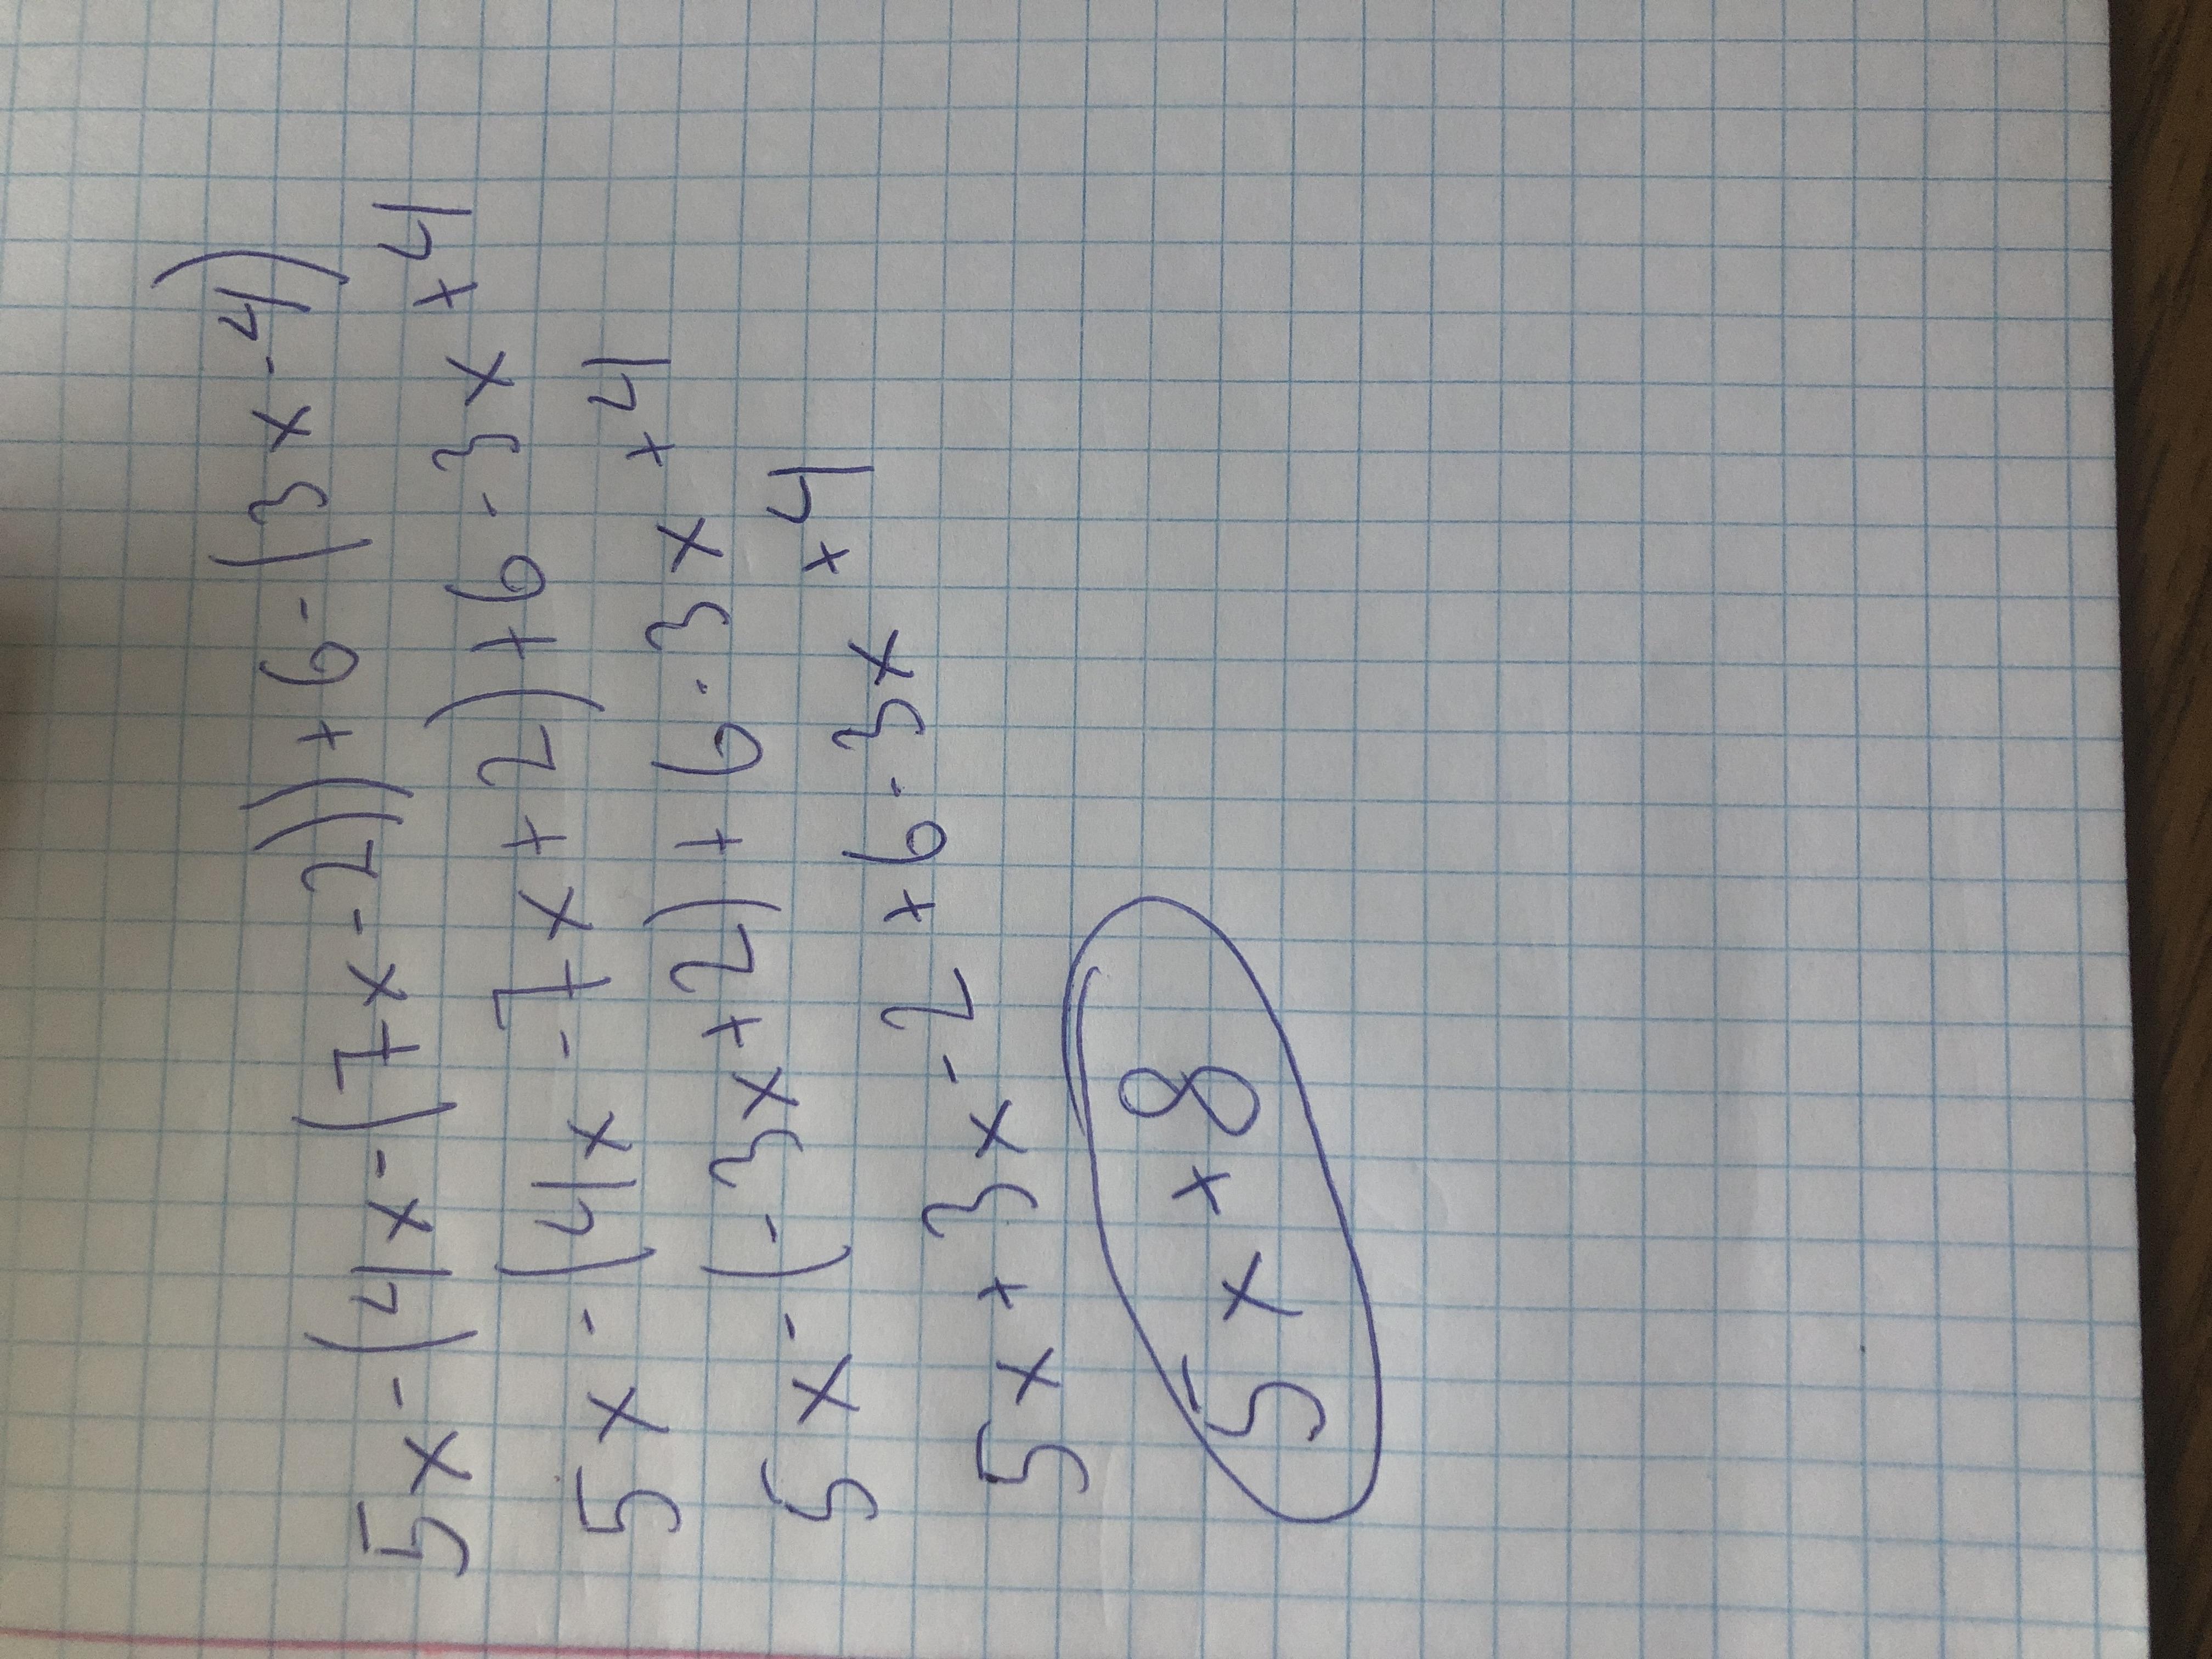 5x-(4x-(7x-2))+6-(3x-4)
5x-(4x-7x+2)+6-3x+4
5x-(-3x+2)+6-3x+4
5x+3x-2+6-3x+4
5x+8